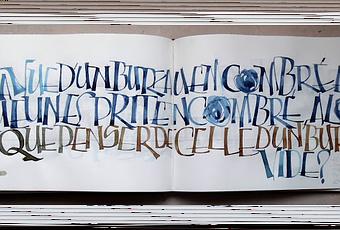 VUE D'UN BUREAU ENCOMBRÉ
UN ESPRIT ENCOMBRÉ
QUE PENSER DE CELLE D'UN BUR
VIDE?